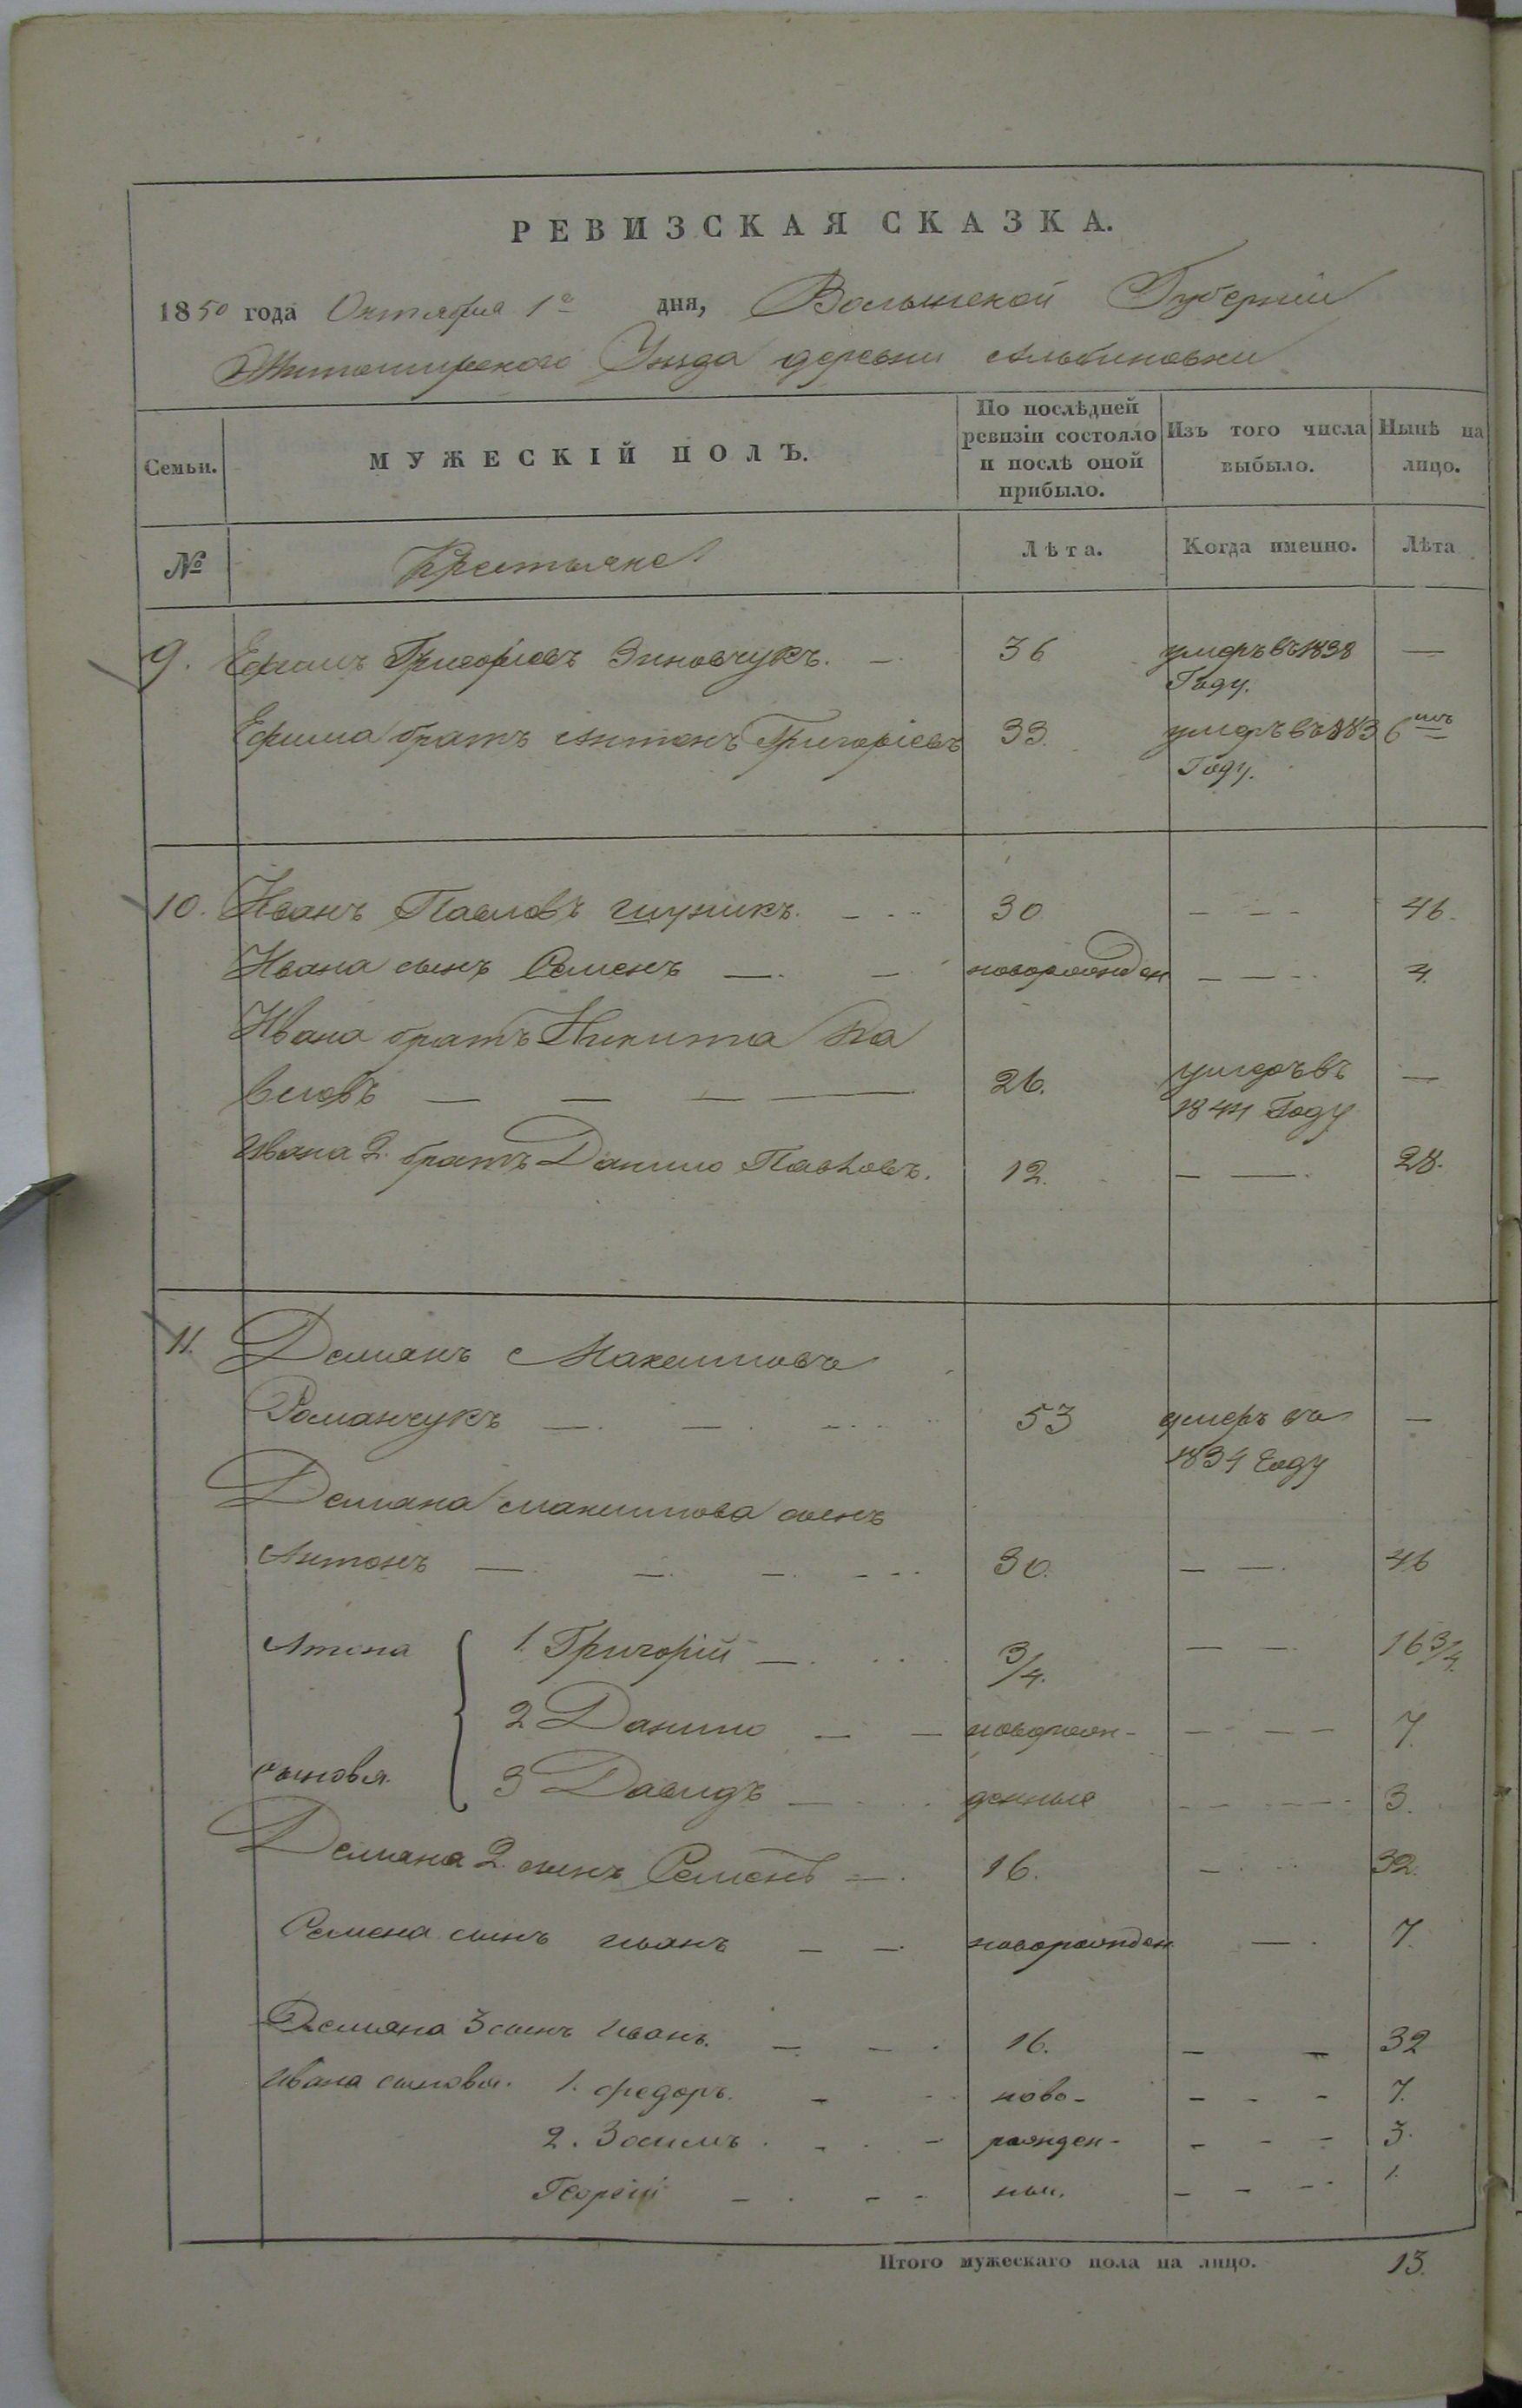 РЕВИЗСКАЯ СКАЗКА.
1850 года Октября 1го дня, Волынской Губернии
Житомирского Уезда деревни Альбиновки
Семьи. МУЖЕСКІЙ ПОЛЪ. По послѣдней ревизіи состояло и послѣ оной прибыло. Изъ того числа выбыло. Нынѣ на лицо.
№ Крестьяне Лѣта. Когда именно. Лѣта
9. Ефимъ Григорьевъ Зиновчукъ. — 36 умеръ въ 1838 —
Году.
Ефима братъ Антонъ Григоріевъ 33. умеръ въ 1836 мъ
Году.
10. Иванъ Павловъ - - - 30 — — - 46.
Ивана сынъ Семенъ — - новорожден — — - 4.
Ивана братъ Никита Па
вловъ — — — — 26. умеръ въ —
1844 Году
Ивана 2. братъ Данило Павловъ. 12. — —. 28.
11. Демянъ Максимовъ
Романчукъ —. — . - - - 53 умеръ въ —
1834 Году
Демяна Максимова сынъ
Антонъ —. —. —. - - - 30. — —. 46
Антона 1. Григорій —. . . 3/4. — —. 16 3/4.
2 Данило — — новорож- — — — 7.
сыновя. 3 Давидъ — - . денные - - - - 3.
Демяна 2. сынъ Семенъ —. 16. — . . . 32.
Семена сынъ иванъ — —. новорожден — . 7.
Демяна 3 сынъ Иванъ. — — . 16. — — 32
Ивана сыновя. 1. федоръ. - - ново- - - - 7.
2. Зосимъ . - . - рожден- - - - 3.
Георгій - . - - ныи. - - - 1.
Итого мужескаго пола на лицо. 13.